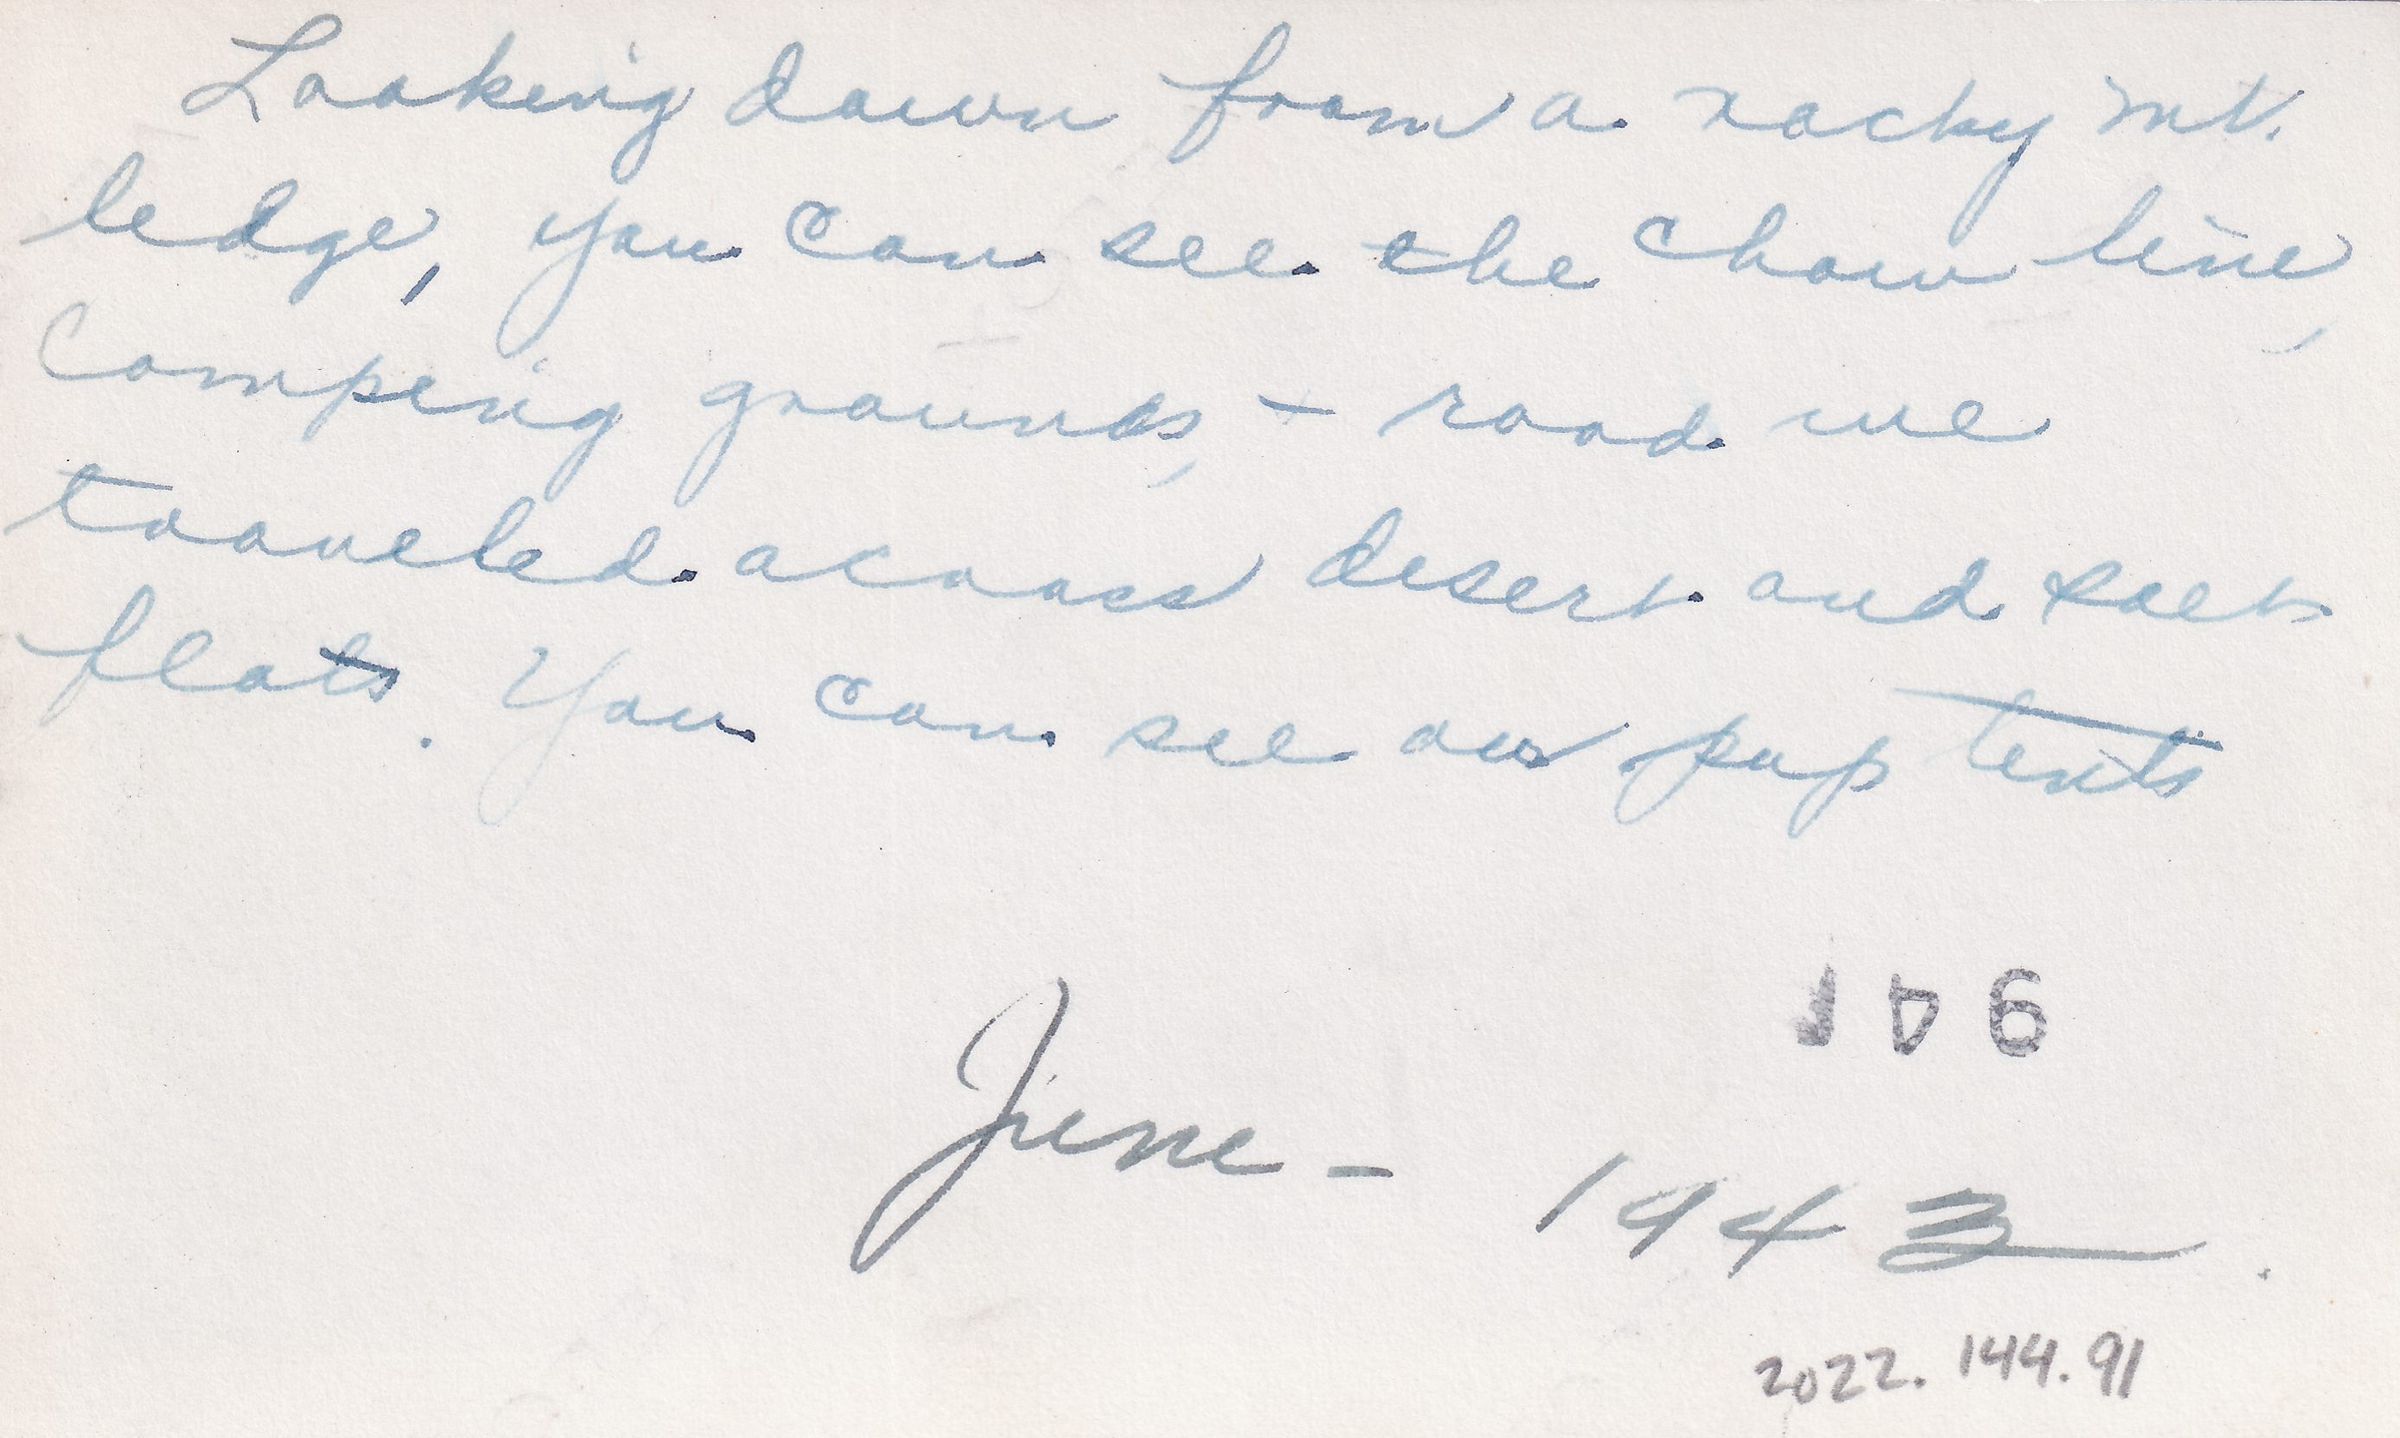 Looking down from a rocky mt.
ledge, you can see the chow line,
camping grounds, + road we
traveled across desert and salt
flats. You can see our pup tents
June - 1943.
2022.144.91